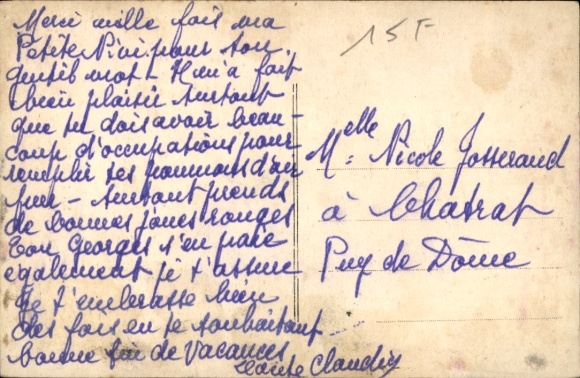 Merci mille fois ma
Petite Nini pour ton
gentil mot – Il m'a fait
bien plaisir surtout
que tu dois avoir beau-
coup d'occupations pour
remplir tes poumons d'air
pur – surtout prends
de bonnes joues rouges
Ton Georges s'en paie
également je t'assure
Je t'embrasse bien
des fois en te souhaitant
bonne fin de vacances
Tante
15 F
Melle Nicole Josserand
à Chatrat
Puy de Dôme